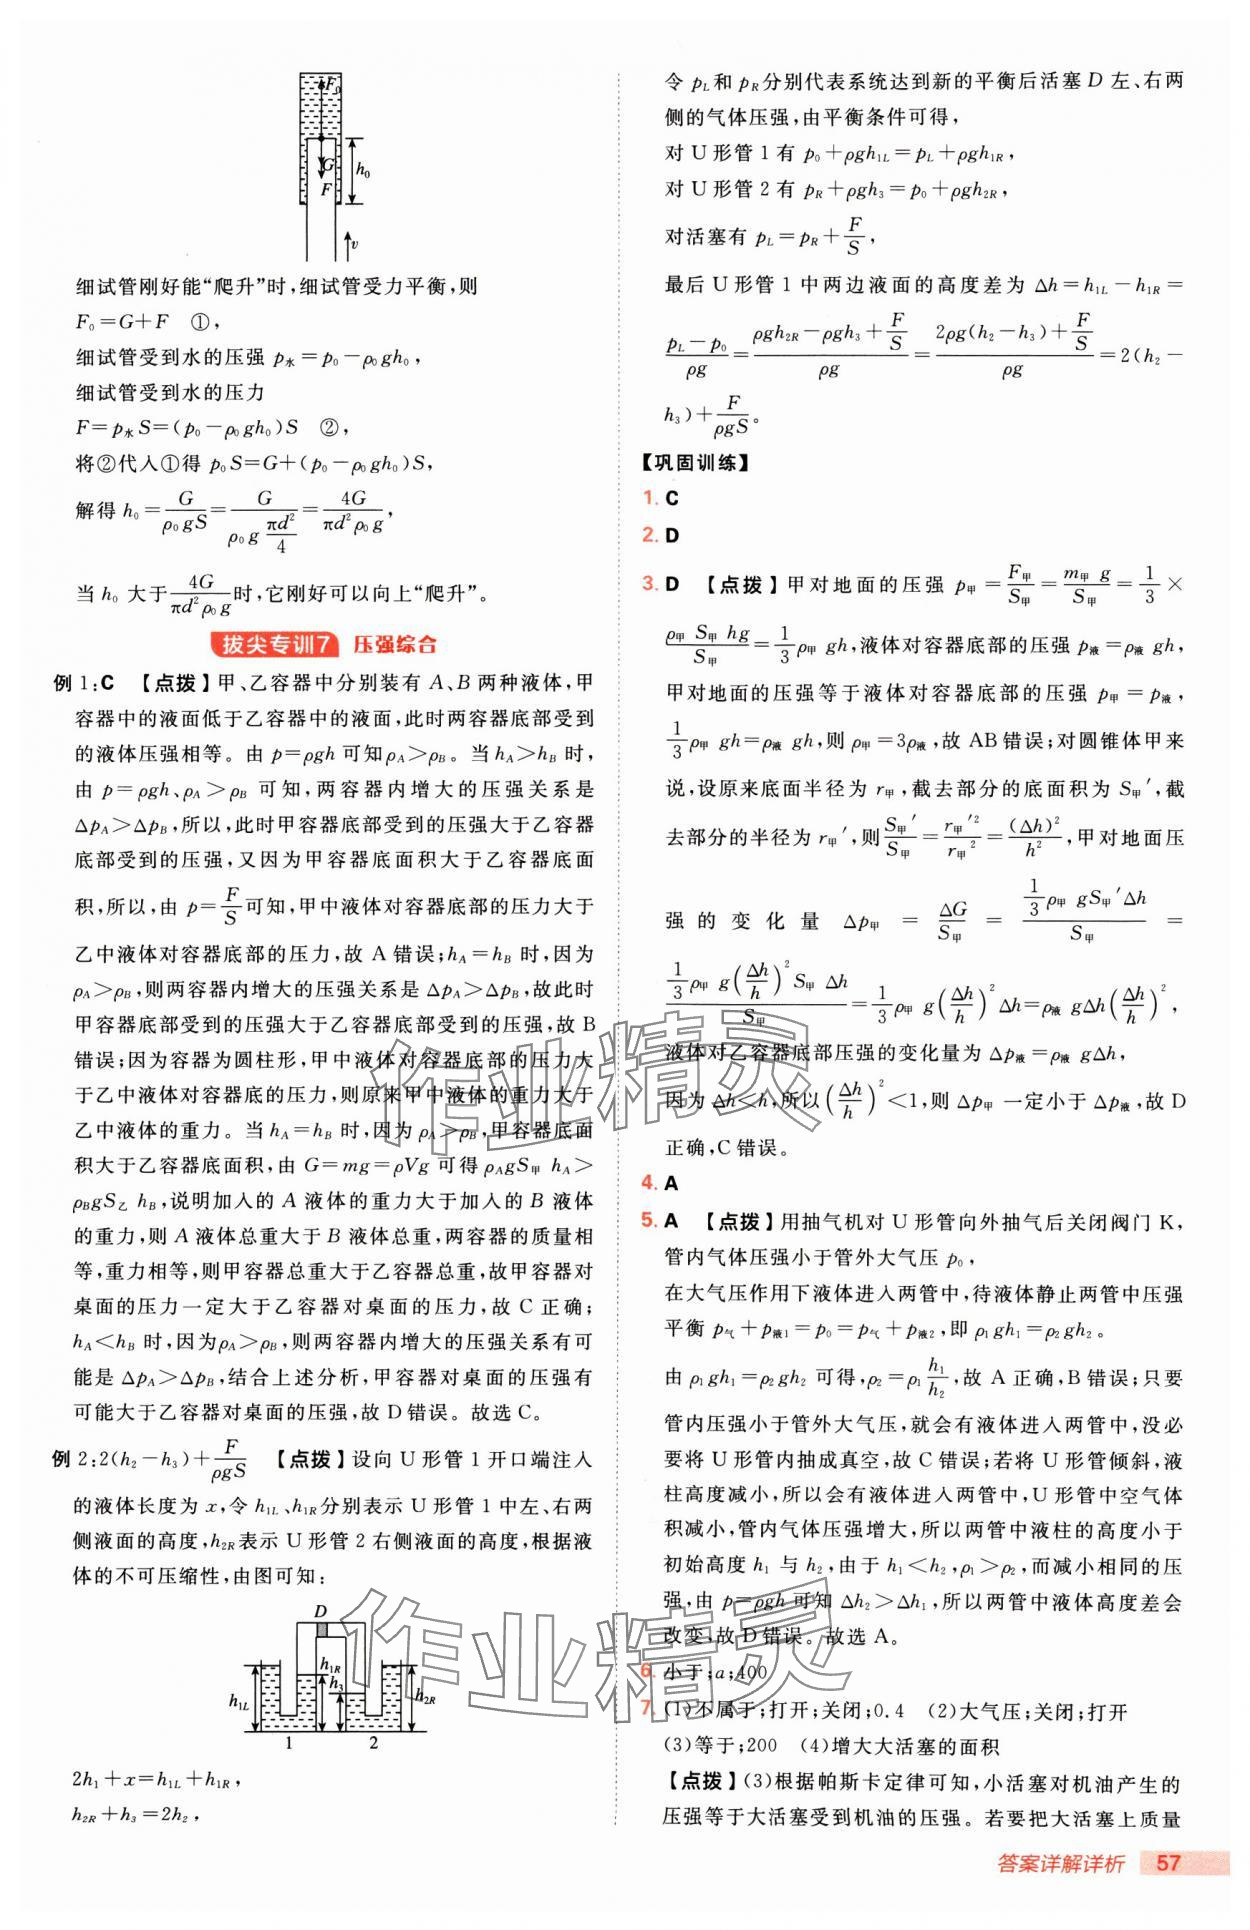 F₀
G
F
h₀
v
细试管刚好能“爬升”时,细试管受力平衡,则
F₀=G+F ①,
细试管受到水的压强 p水=p₀-ρ₀gh₀,
细试管受到水的压力
F=p水S=(p₀-ρ₀gh₀)S ②,
将②代入①得 p₀S=G+(p₀-ρ₀gh₀)S,
解得 h₀=G/(ρ₀gS)=G/(ρ₀g πd²/4)=4G/(πd²ρ₀g),
当 h₀ 大于 4G/(πd²ρ₀g) 时,它刚好可以向上“爬升”。
拔尖专训7 压强综合
例 1:C 【点拨】甲、乙容器中分别装有 A、B 两种液体,甲
容器中的液面低于乙容器中的液面,此时两容器底部受到
的液体压强相等。由 p=ρgh 可知ρA>ρB。当 hA>hB 时,
由 p=ρgh、ρA>ρB 可知,两容器内增大的压强关系是
ΔpA>ΔpB,所以,此时甲容器底部受到的压强大于乙容器
底部受到的压强,又因为甲容器底面积大于乙容器底面
积,所以,由 p=F/S可知,甲中液体对容器底部的压力大于
乙中液体对容器底部的压力,故 A 错误;hA=hB 时,因为
ρA>ρB,则两容器内增大的压强关系是 ΔpA>ΔpB,故此时
甲容器底部受到的压强大于乙容器底部受到的压强,故 B
错误;因为容器为圆柱形,甲中液体对容器底部的压力大
于乙中液体对容器底的压力,则原来甲中液体的重力大于
乙中液体的重力。当 hA=hB 时,因为 ρA>ρB,甲容器底面
积大于乙容器底面积,由 G=mg=ρVg 可得 ρAgS甲 hA>
ρBgS乙 hB,说明加入的 A 液体的重力大于加入的 B 液体
的重力,则 A 液体总重大于 B 液体总重,两容器的质量相
等,重力相等,则甲容器总重大于乙容器总重,故甲容器对
桌面的压力一定大于乙容器对桌面的压力,故 C 正确;
hA<hB 时,因为ρA>ρB,则两容器内增大的压强关系有可
能是 ΔpA>ΔpB,结合上述分析,甲容器对桌面的压强有
可能大于乙容器对桌面的压强,故 D 错误。故选 C。
例 2:2(h₂-h₃)+F/(ρgS) 【点拨】设向 U 形管 1 开口端注入
的液体长度为 x,令 h1L、h1R分别表示 U 形管 1 中左、右两
侧液面的高度,h2R表示 U 形管 2 右侧液面的高度,根据液
体的不可压缩性,由图可知:
D
h1R
h₃
h1L
h2R
1 2
2h₁+x=h1L+h1R,
h2R+h₃=2h₂,
令 pL和 pR分别代表系统达到新的平衡后活塞 D 左、右两
侧的气体压强,由平衡条件可得,
对 U 形管 1 有 p₀+ρgh1L=pL+ρgh1R,
对 U 形管 2 有 pR+ρgh₃=p₀+ρgh2R,
对活塞有 pL=pR+F/S,
最后 U 形管 1 中两边液面的高度差为 Δh=h1L-h1R=
(pL-p₀)/(ρg)=(ρgh2R-ρgh₃+F/S)/(ρg)=(2ρg(h₂-h₃)+F/S)/(ρg)=2(h₂-
h₃)+F/(ρgS)。
【巩固训练】
1. C
2. D
3. D 【点拨】甲对地面的压强 p甲=F甲/S甲=m甲g/S甲=1/3×
ρ甲 S甲 hg/S甲=1/3ρ甲 gh,液体对容器底部的压强 p液=ρ液 gh,
甲对地面的压强等于液体对容器底部的压强 p甲=p液,
1/3ρ甲 gh=ρ液 gh,则 ρ甲=3ρ液,故 AB 错误;对圆锥体甲来
说,设原来底面半径为 r甲,截去部分的底面积为 S甲′,截
去部分的半径为 r甲′,则S甲′/S甲=r甲′²/r甲²=(Δh)²/h²,甲对地面压
强的变化量 Δp甲=ΔG/S甲=(1/3ρ甲 gS甲′Δh)/S甲=
(1/3ρ甲 g(Δh/h)²S甲 Δh)/S甲=1/3ρ甲 g(Δh/h)²Δh=ρ液 gΔh(Δh/h)²,
液体对乙容器底部压强的变化量为 Δp液=ρ液 gΔh,
因为 Δh<h,所以(Δh/h)²<1,则 Δp甲 一定小于 Δp液,故 D
正确,C 错误。
4. A
5. A 【点拨】用抽气机对 U 形管向外抽气后关闭阀门 K,
管内气体压强小于管外大气压 p₀,
在大气压作用下液体进入两管中,待液体静止两管中压强
平衡 p气+p液1=p₀=p气+p液2,即 ρ₁gh₁=ρ₂gh₂。
由 ρ₁gh₁=ρ₂gh₂ 可得,ρ₂=ρ₁h₁/h₂,故 A 正确,B 错误;只要
管内压强小于管外大气压,就会有液体进入两管中,没必
要将 U 形管内抽成真空,故 C 错误;若将 U 形管倾斜,液
柱高度减小,所以会有液体进入两管中,U 形管中空气体
积减小,管内气体压强增大,所以两管中液柱的高度小于
初始高度 h₁ 与 h₂,由于 h₁<h₂,ρ₁>ρ₂,而减小相同的压
强,由 p=ρgh 可知 Δh₂>Δh₁,所以两管中液体高度差会
改变,故 D 错误。故选 A。
6. 小于;a;400
7. (1)不属于;打开;关闭;0.4 (2)大气压;关闭;打开
(3)等于;200 (4)增大大活塞的面积
【点拨】(3)根据帕斯卡定律可知,小活塞对机油产生的
压强等于大活塞受到机油的压强。若要把大活塞上质量
答案详解详析 57
作业精灵
作业精灵